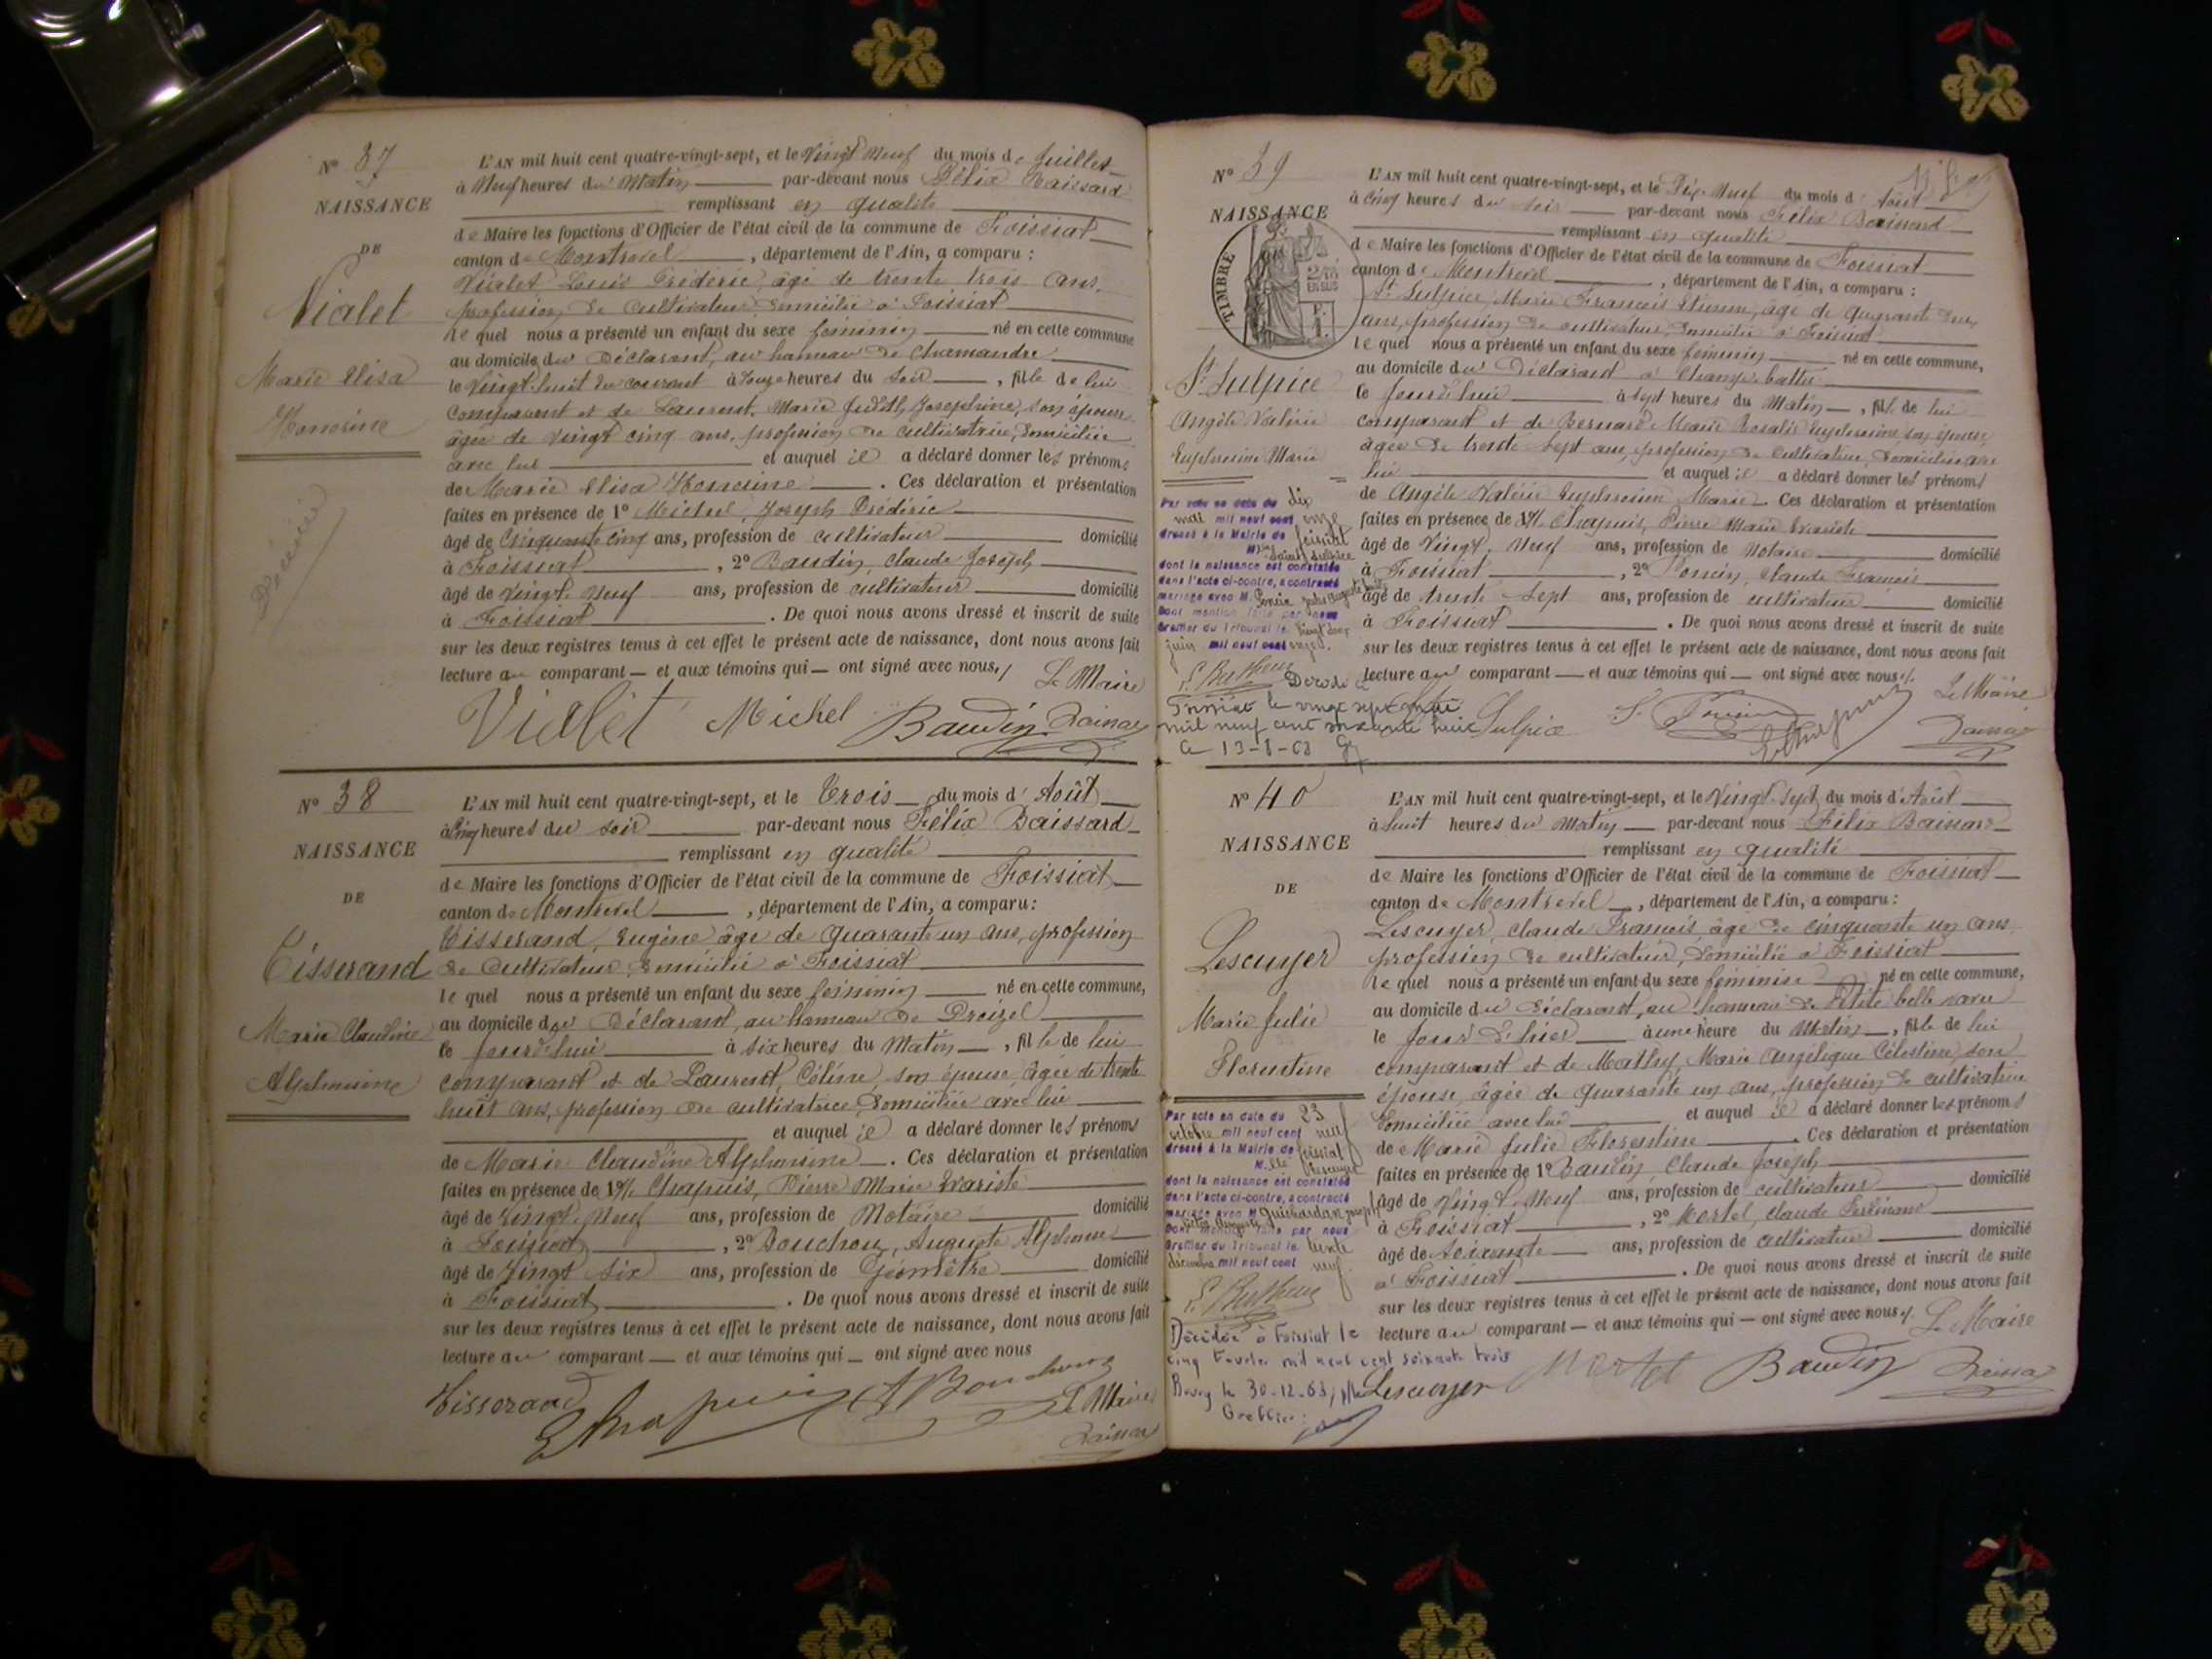 N° 37
NAISSANCE
DE
Vialet
Marie Elisa
Honorine
Décédée
L'AN mil huit cent quatre-vingt-sept, et le Vingt Neuf du mois de Juillet
à Neuf heures du Matin par-devant nous Félix Baissard
remplissant en qualité
de Maire les fonctions d'Officier de l'état civil de la commune de Foissiat
canton de Montrevel, département de l'Ain, a comparu :
Vialet Louis Frédéric, âgé de trente trois ans,
profession de cultivateur, domicilié à Foissiat
lequel nous a présenté un enfant du sexe féminin né en cette commune
au domicile du Déclarant, au hameau de Chamandre
le Vingt huit du courant à heures du Soir, fille de lui
comparant et de Laurent, Marie Judith Josephine, son épouse
âgée de vingt cinq ans, profession de cultivatrice, domiciliée
avec lui et auquel il a déclaré donner les prénoms
de Marie Elisa Honorine. Ces déclaration et présentation
faites en présence de 1° Michel, Joseph Frédéric
âgé de Cinquante cinq ans, profession de cultivateur domicilié
à Foissiat, 2° Baudin, Claude Joseph
âgé de Vingt Neuf ans, profession de cultivateur domicilié
à Foissiat. De quoi nous avons dressé et inscrit de suite
sur les deux registres tenus à cet effet le présent acte de naissance, dont nous avons fait
lecture au comparant — et aux témoins qui — ont signé avec nous. Le Maire
Vialet Michel Baudin Baissard
N° 38
NAISSANCE
DE
Tisserand
Marie Claudine
Alphonsine
L'AN mil huit cent quatre-vingt-sept, et le Trois du mois d'Août
à Cinq heures du soir par-devant nous Félix Baissard
remplissant en qualité
de Maire les fonctions d'Officier de l'état civil de la commune de Foissiat
canton de Montrevel, département de l'Ain, a comparu :
Tisserand, Eugène âgé de quarante un ans, profession
de Cultivateur, domicilié à Foissiat
lequel nous a présenté un enfant du sexe féminin né en cette commune,
au domicile du Déclarant, au hameau de
le jourd'hui à six heures du Matin, fille de lui
comparant et de Laurent, Céline, son épouse, âgée de trente
huit ans, profession de cultivatrice, domiciliée avec lui
et auquel il a déclaré donner les prénoms
de Marie Claudine Alphonsine. Ces déclaration et présentation
faites en présence de 1° Chapuis, Pierre Marie Evariste
âgé de Vingt Neuf ans, profession de Notaire domicilié
à Foissiat, 2° Bouchoux, Auguste Alphonse
âgé de Vingt Six ans, profession de Géomètre domicilié
à Foissiat. De quoi nous avons dressé et inscrit de suite
sur les deux registres tenus à cet effet le présent acte de naissance, dont nous avons fait
lecture au comparant — et aux témoins qui — ont signé avec nous
Tisserand Chapuis A Bouchoux Le Maire
Baissard
N° 39
NAISSANCE
TIMBRE
2/10 EN SUS
St Sulpice
Angèle Valérie
Euphrosine Marie
Par acte en date du dix
mai mil neuf cent onze
dressé à la Mairie de Foissiat
Mlle Saint Sulpice
dont la naissance est constatée
dans l'acte ci-contre, a contracté
mariage avec M. Poncin Jules Auguste
Dont mention faite par nous
Greffier du Tribunal le vingt deux
juin mil neuf cent onze.
L'AN mil huit cent quatre-vingt-sept, et le Dix Neuf du mois d'Août
à Cinq heures du soir par-devant nous Félix Baissard
remplissant en qualité
de Maire les fonctions d'Officier de l'état civil de la commune de Foissiat
canton de Montrevel, département de l'Ain, a comparu :
St Sulpice, Marie François Etienne, âgé de quarante
ans, profession de cultivateur, domicilié à Foissiat
lequel nous a présenté un enfant du sexe féminin né en cette commune,
au domicile du Déclarant à
le jourd'hui à sept heures du Matin, fille de lui
comparant et de Bernard Marie Rosalie Euphrosine, son épouse
âgée de trente sept ans, profession de cultivatrice, domiciliée avec
lui et auquel il a déclaré donner les prénoms
de Angèle Valérie Euphrosine Marie. Ces déclaration et présentation
faites en présence de 1° Chapuis, Pierre Marie Evariste
âgé de Vingt Neuf ans, profession de Notaire domicilié
à Foissiat, 2° Poncin, Claude François
âgé de trente Sept ans, profession de cultivateur domicilié
à Foissiat. De quoi nous avons dressé et inscrit de suite
sur les deux registres tenus à cet effet le présent acte de naissance, dont nous avons fait
lecture au comparant — et aux témoins qui — ont signé avec nous. Le Maire
Décédée à
Foissiat le vingt sept
mil neuf cent soixante huit
Le 13-8-68
Sulpice Poncin Baissard
N° 40
NAISSANCE
DE
Lescuyer
Marie Julie
Florentine
Par acte en date du 23
octobre mil neuf cent neuf
dressé à la Mairie de Foissiat
Mlle Lescuyer
dont la naissance est constatée
dans l'acte ci-contre, a contracté
mariage avec M. Guichardan Joseph
Dont mention faite par nous
Greffier du Tribunal le trente
décembre mil neuf cent neuf.
Décédée à Foissiat le
cinq Février mil neuf cent soixante trois
Bourg le 30-12-63, Le
Greffier :
L'AN mil huit cent quatre-vingt-sept, et le Vingt Sept du mois d'Août
à huit heures du Matin par-devant nous Félix Baissard
remplissant en qualité
de Maire les fonctions d'Officier de l'état civil de la commune de Foissiat
canton de Montrevel, département de l'Ain, a comparu :
Lescuyer, Claude François âgé de cinquante un ans
profession de cultivateur, domicilié à Foissiat
lequel nous a présenté un enfant du sexe féminin né en cette commune,
au domicile du déclarant, au hameau de Petite belle
le jour d'hier à une heure du Matin, fille de lui
comparant et de Mathy, Marie Angélique Célestine, son
épouse, âgée de quarante un ans, profession de cultivatrice
domiciliée avec lui et auquel il a déclaré donner les prénoms
de Marie Julie Florentine. Ces déclaration et présentation
faites en présence de 1° Baudin, Claude Joseph
âgé de Vingt Neuf ans, profession de cultivateur domicilié
à Foissiat, 2° Mortel, Claude Ferdinand
âgé de Soixante ans, profession de cultivateur domicilié
à Foissiat. De quoi nous avons dressé et inscrit de suite
sur les deux registres tenus à cet effet le présent acte de naissance, dont nous avons fait
lecture au comparant — et aux témoins qui — ont signé avec nous. Le Maire
Lescuyer Mortel Baudin Baissard